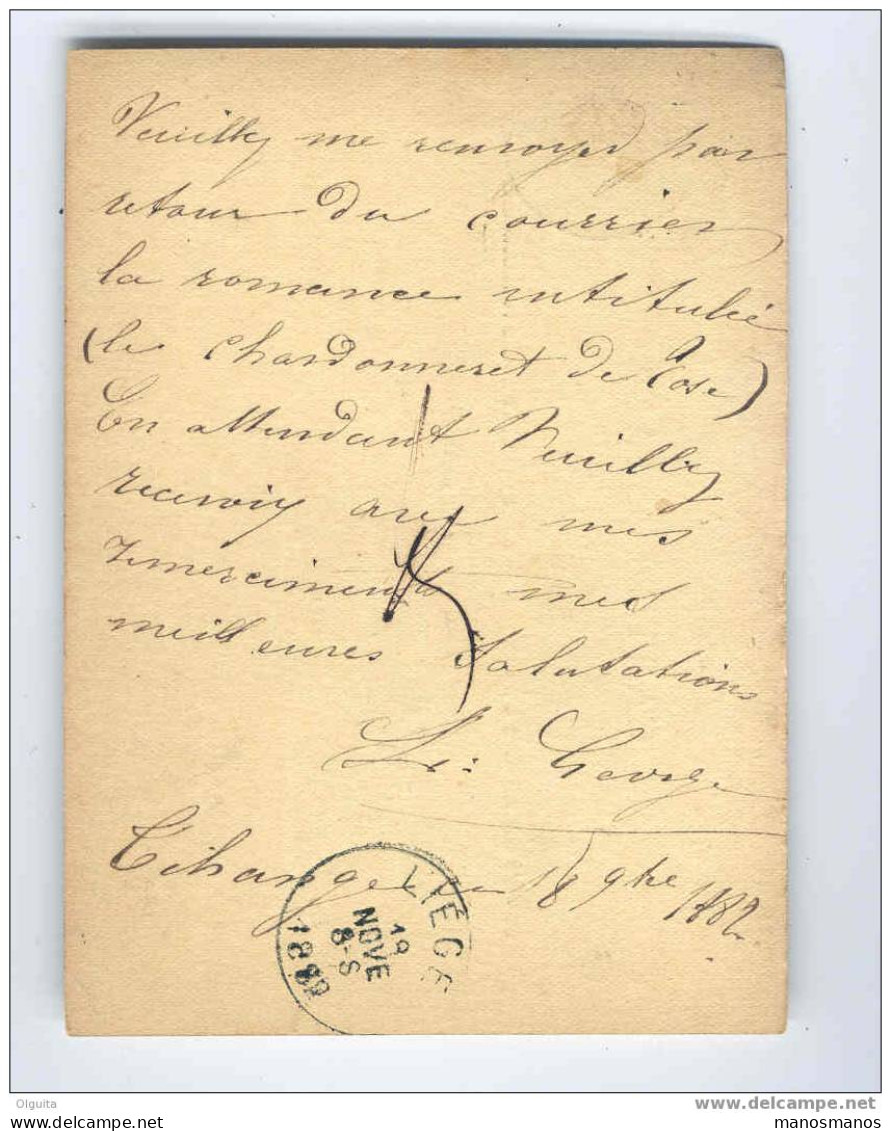 Veuillez me renvoyer par
retour du courrier
la romance intitulée
(le chardonneret de Rose)
En attendant Veuillez
recevoir avec mes
remerciments mes
meilleures Salutations
George
Tihange le 18 9bre 1882
LIÉGE
19
NOVE
8-S
1882
Olguita
www.delcampe.net
manosmanos
manosmanos